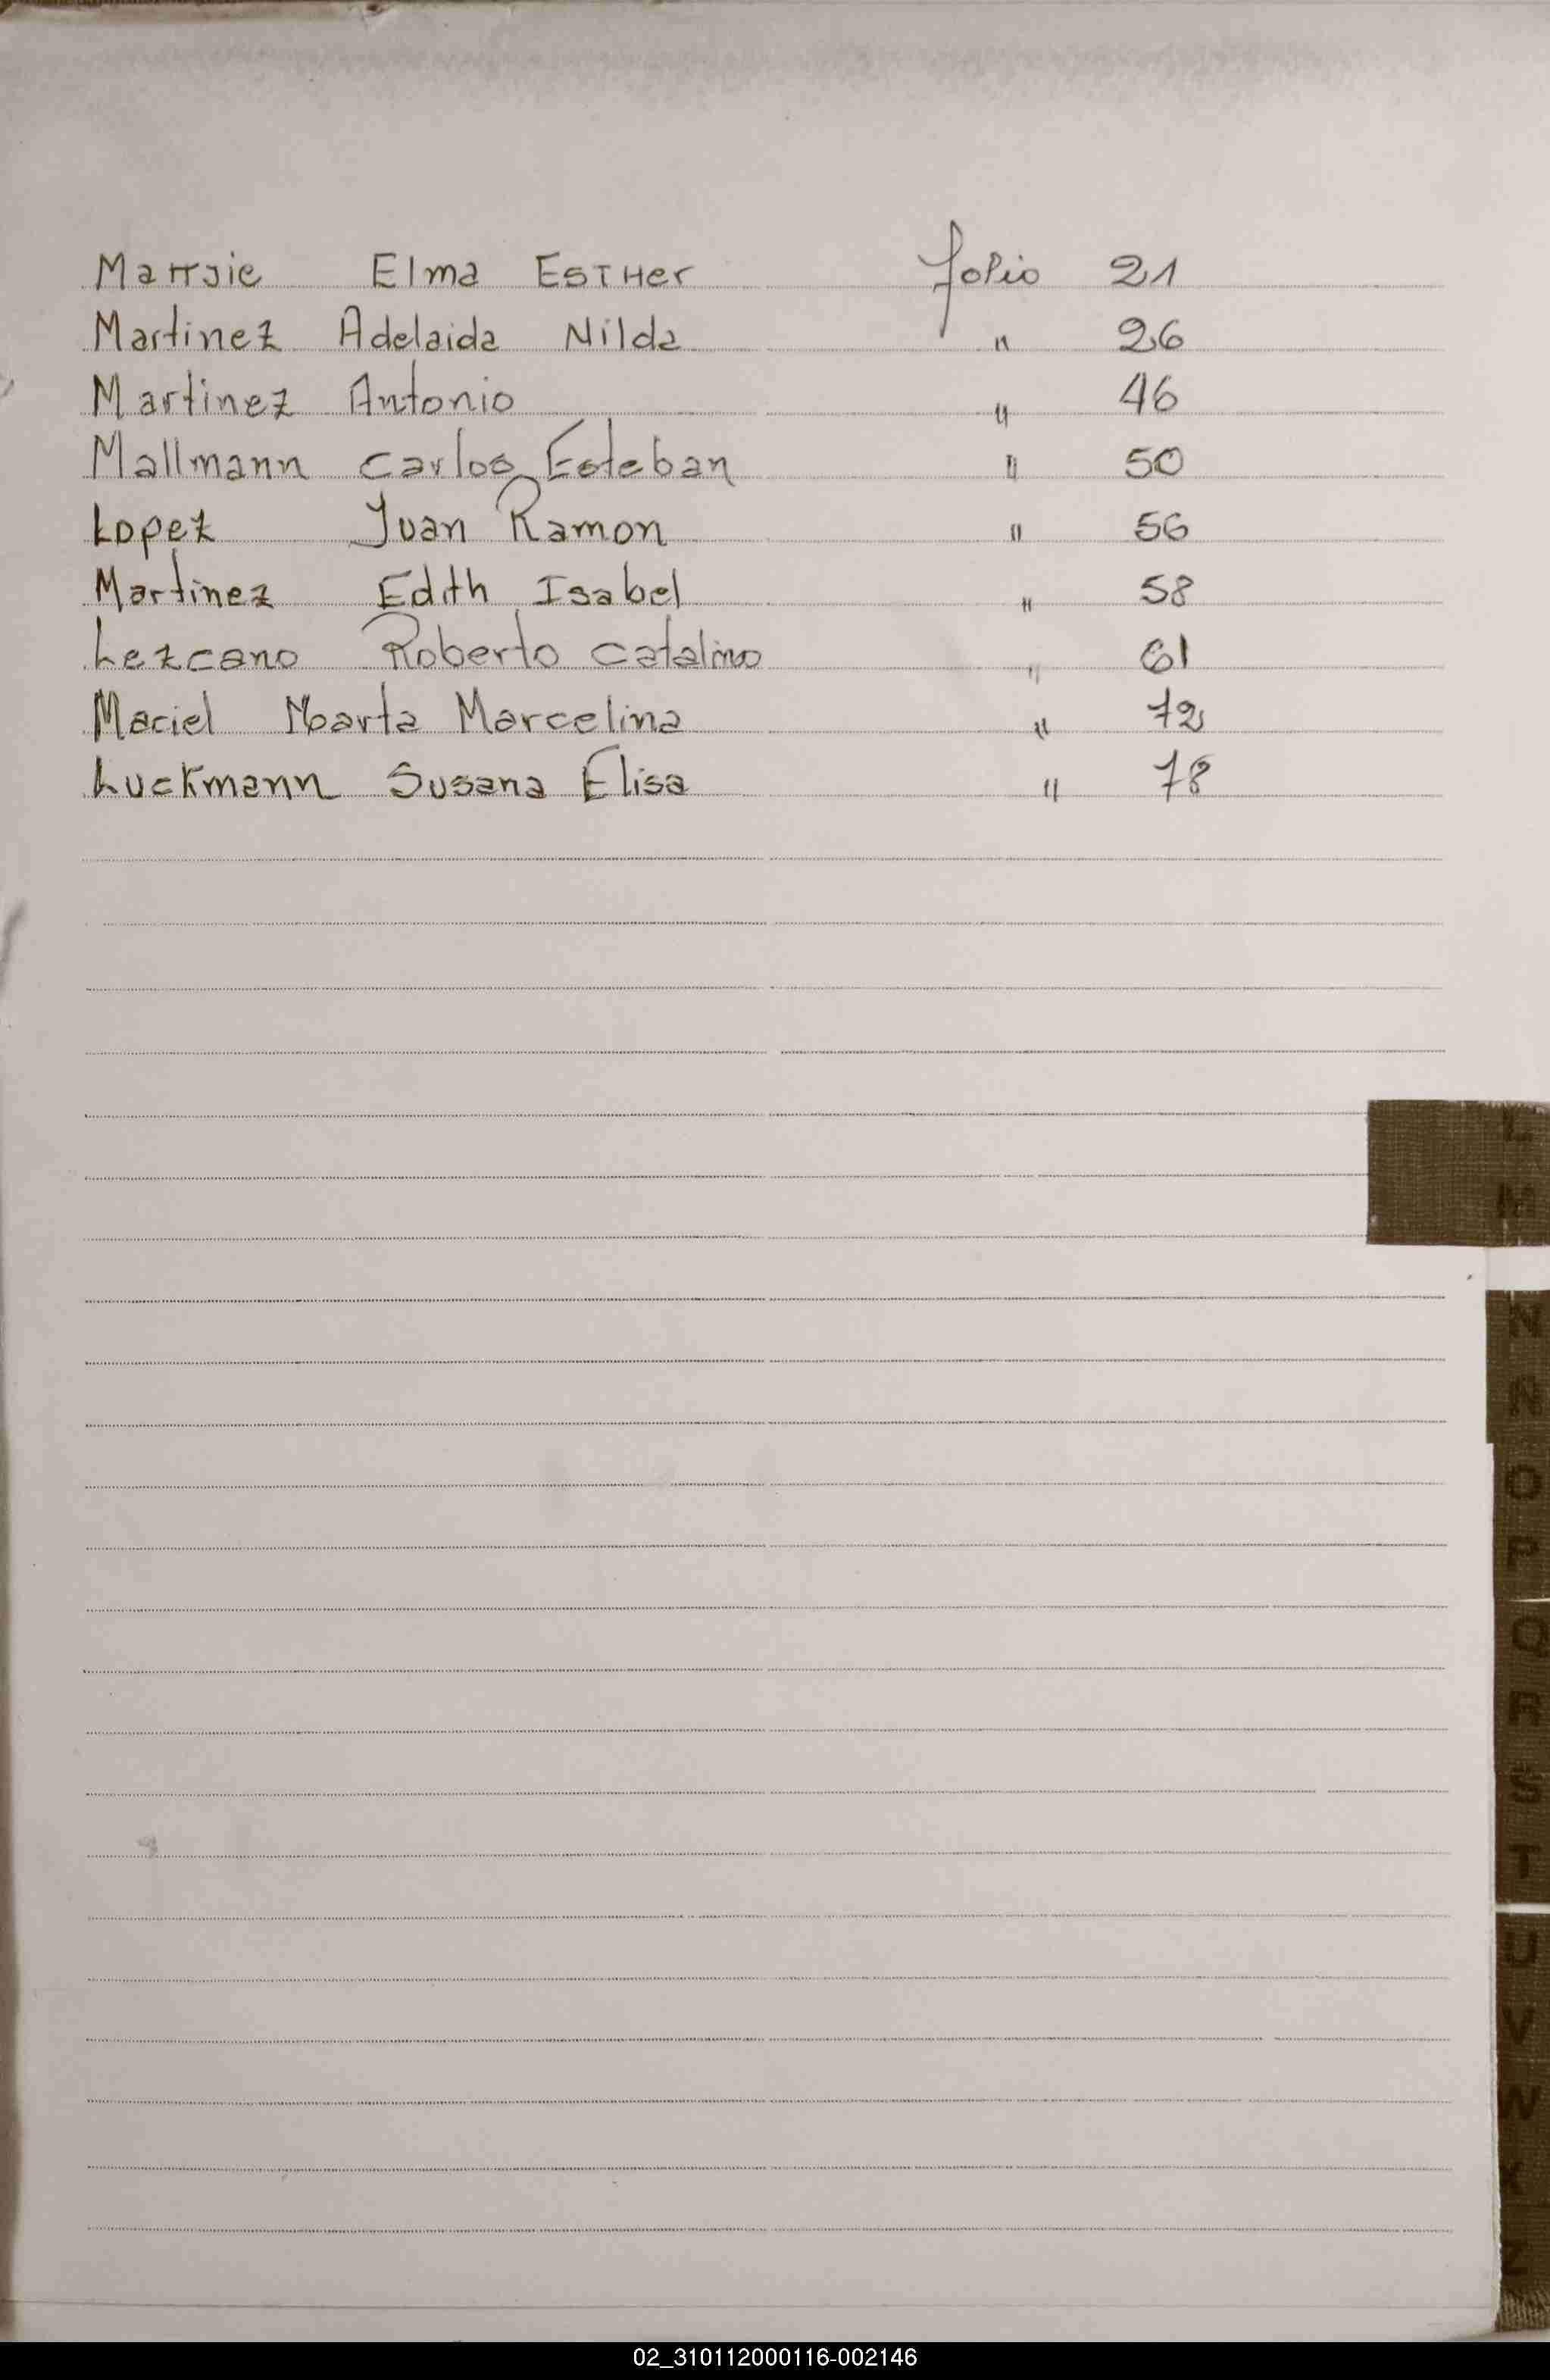 Marrsie Elma EsTHer folio 21
Martinez Adelaida Nilda " 26
Martinez Antonio " 46
Mallmann Carlos Esteban " 50
Lopez Juan Ramon " 56
Martinez Edith Isabel " 58
Lezcano Roberto Catalino " 61
Maciel Marta Marcelina " 72
Luckmann Susana Elisa " 78
L
M
N
Ñ
O
P
Q
R
S
T
U
V
W
Z
02_310112000116-002146